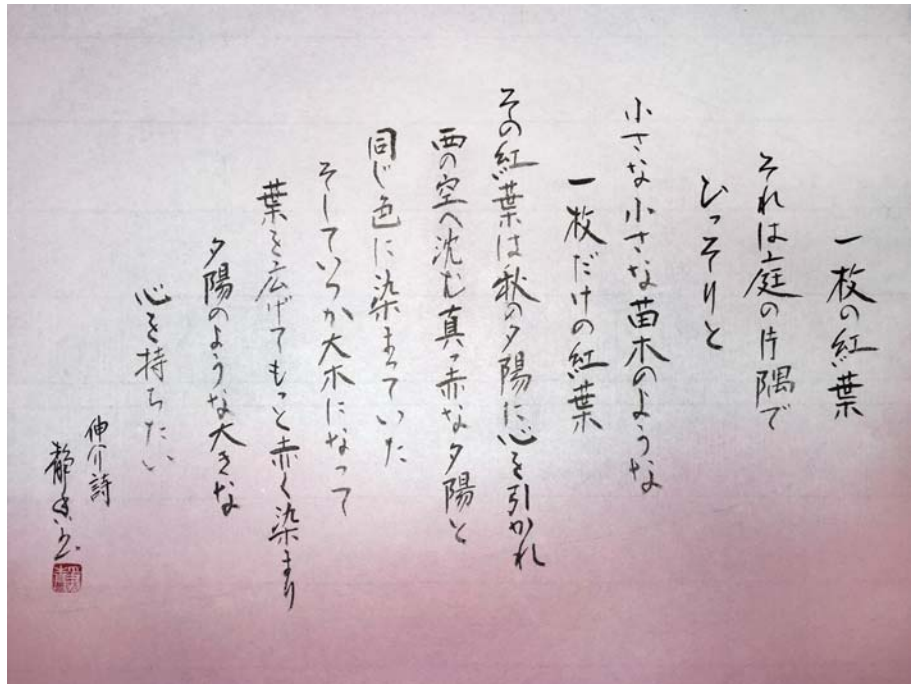 一枚の紅葉
それは庭の片隅で
ひっそりと
小さな小さな苗木のような
一枚だけの紅葉
その紅葉は秋の夕陽に心を引かれ
西の空へ沈む真っ赤な夕陽と
同じ色に染まっていた
そしていつか大木になって
葉を広げてもっと赤く染まり
夕陽のような大きな
心を持ちたい
伸介詩
静